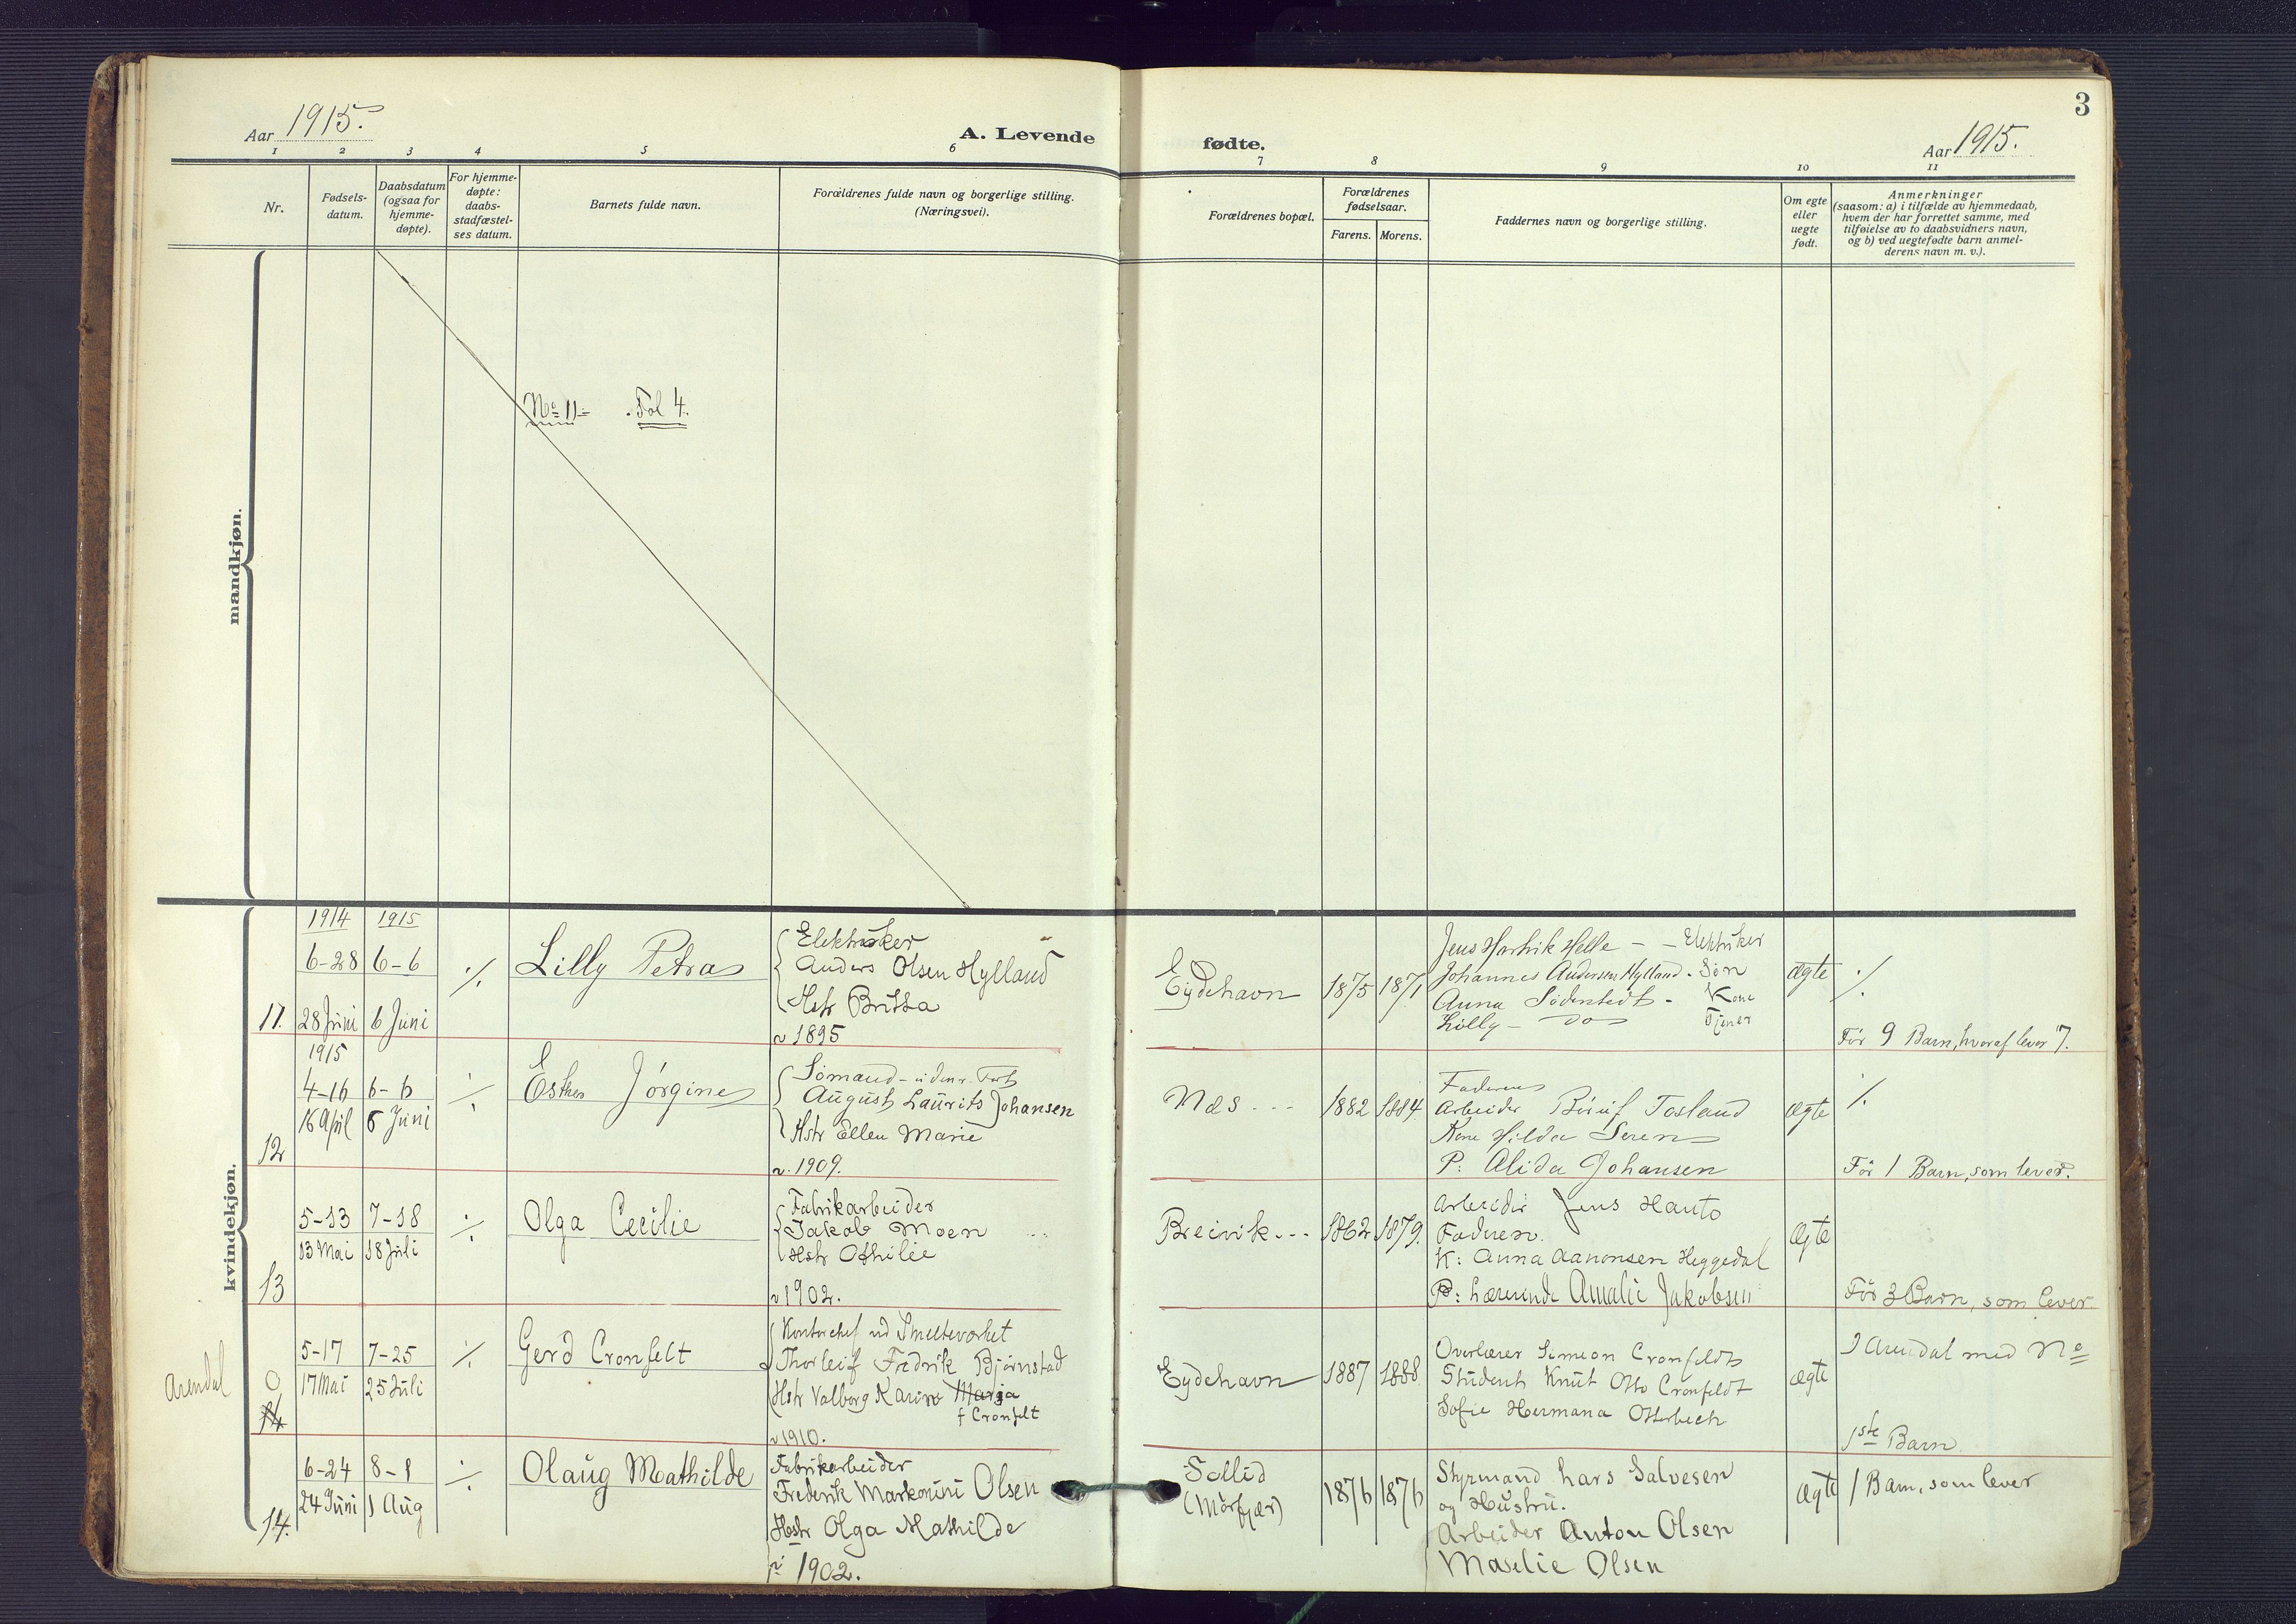 3
Aar 1915.
A. Levende
fødte.
Aar 1915.
1 2 3 4 5 6 7 8 9 10 11
Nr.
Fødsels-
datum.
Daabsdatum
(ogsaa for
hjemme-
døpte).
For hjemme-
døpte:
daabs-
stadfæstel-
ses datum.
Barnets fulde navn.
Forældrenes fulde navn og borgerlige stilling.
(Næringsvei).
Forældrenes bopæl.
Forældrenes
fødselsaar.
Farens. Morens.
Faddernes navn og borgerlige stilling.
Om egte
eller
uegte
født.
Anmerkninger
(saasom: a) i tilfælde av hjemmedaab,
hvem der har forrettet samme, med
tilføielse av to daabsvidners navn,
og b) ved uegtefødte barn anmel-
derens navn m. v.).
mandkjøn.
No 11 Fol 4.
kvindekjøn.
1914 1915
6-28 6-6
11. 28 Juni 6 Juni
./.
Lilly Petra
Elektriker
Anders Olsen Hylland
Hstr Britta
v 1895
Eydehavn
1875 1871
Jens Hartvik Helle - - Elektriker
Johannes Andersen Hylland - Søn
Anna Söderstedt - Kone
Lilly - do Tjener
ægte
./.
Før 9 Barn, hvoraf lever 7.
1915
4-16 6-6
16 April 6 Juni
12
./.
Esther Jörgine
Sömand - udenr. Fart
August Laurits Johansen
Hstr Ellen Marie
v. 1909.
Næs ---
1882 1884
Faderen
Arbeider Tosland
Kone Hilda Seren
P: Alida Johansen
ægte
./.
Før 1 Barn, som lever.
5-13 7-18
13 Mai 18 Juli
13
./.
Olga Cecilie
Fabrikarbeider
Jakob Moen
Hstr Othilie
v 1902.
Breivik ---
1862 1879.
Arbeider Jens Hauto
Faderen.
K: Anna Aanonsen Heggedal
P: Lærerinde Amalie Jakobsen
ægte
Før 3 Barn, som lever
Arendal
5-17 7-25
0 17 Mai 25 Juli
14
./.
Gerd Cronfelt
Kontorchef ved Smelteverket
Thorleif Fredrik Bjørnstad
Hstr Valborg Karine Marja
f Cronfelt
v 1910.
Eydehavn
1887 1888
Overlærer Simeon Cronfeldt
Student Knut Otto Cronfeldt
Sofie Hermana Otterbech
ægte
I Arendal med No
1ste Barn
6-24 8-1
24 Juni 1 Aug
14.
./.
Olaug Mathilde
Fabrikarbeider
Frederik Markonini Olsen
Hstr Olga Mathilde
v 1902.
Sollid
(Mörfjær)
1876 1876
Styrmand Lars Salvesen
og Hustru.
Arbeider Anton Olsen
Maslie Olsen
ægte
1 Barn, som lever